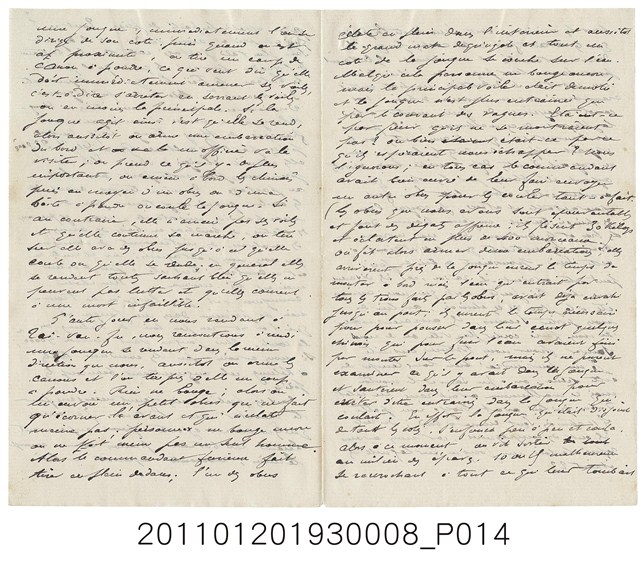 une jonque, immédiatement l'on se
dirige de son côté, puis quand on est
à proximité on tire un coup de
canon à poudre, ce qui veut dire qu'elle
doit immédiatement amener ses voiles,
c'est-à-dire s'arrêter en serrant les voiles
ou en moins la principale. Si la
jonque agit ainsi c'est qu'elle se rend,
alors aussitôt on arme une embarcation
du bord et un officier va la
visiter, on prend ce qu'il y a de plus
important, on amène à bord les chinois
puis au moyen d'un obus ou d'une
boîte à poudre on coule la jonque. Si
au contraire, elle n'amène pas ses voiles
et qu'elle continue sa marche, on tire
sur elle avec des obus jusqu'à ce qu'elle
coule ou qu'elle se rende, en général elles
se rendent toutes sachant bien qu'elles ne
peuvent pas lutter et qu'elles courent
à une mort infaillible.
L'autre jour en nous rendant à
Taï-wan-fu, nous rencontrons à midi
une jonque se rendant dans la même
direction que nous, aussitôt on arme les
canons et l'on tire sur elle un coup
à poudre. Rien ne bouge; alors on
lui envoie un petit obus qui ne fait
qu'écorner le avant et qui n'éclate
même pas, personne ne bouge encore
on ne voit même pas un seul homme.
Alors le commandant furieux fait
tirer en plein dedans; l'un des obus
éclate en plein dans l'intérieur et aussitôt
le grand mât dégringole et tout un
côté de la jonque se couche sur l'eau.
Malgré cela personne ne bouge encore,
mais la principale voile étant démolie
et la jonque n'est plus entraînée que
par le courant des vagues. Etait-ce
par peur qu'ils ne se montraient
pas? ou bien était-ce parce
qu'ils espéraient nous échapper? nous
l'ignorons; en tous cas le commandant
avait bien envie de leur faire envoyer
un autre obus pour les couler tout à fait.
(les obus que nous avons sont épouvantables
et font des dégâts affreux: ils pèsent 30 kilogs
et éclatent en plus de 600 morceaux.
On fit alors armer deux embarcations; elles
arrivèrent près de la jonque eurent le temps de
monter à bord mais l'eau qui entrait par
tous les trous faits par les obus, avait déjà envahi
jusqu'au pont; ils eurent le temps nécessaire
pour pousser dans leur canot quelques
chinois qui peu à peu avaient fini
par monter sur le pont, mais ils ne purent
examiner ce qu'il y avait dans la jonque
et sautèrent dans leur embarcation pour
éviter d'être entraînés dans la jonque qui
coulait. En effet la jonque qui était défoncée
de tous les côtés s'enfonça peu à peu et coula.
alors à ce moment on vit sortir
au milieu des épaves, 10 ou 15 malheureux
se raccrochant à tout ce qui leur tombait
201101201930008_P014